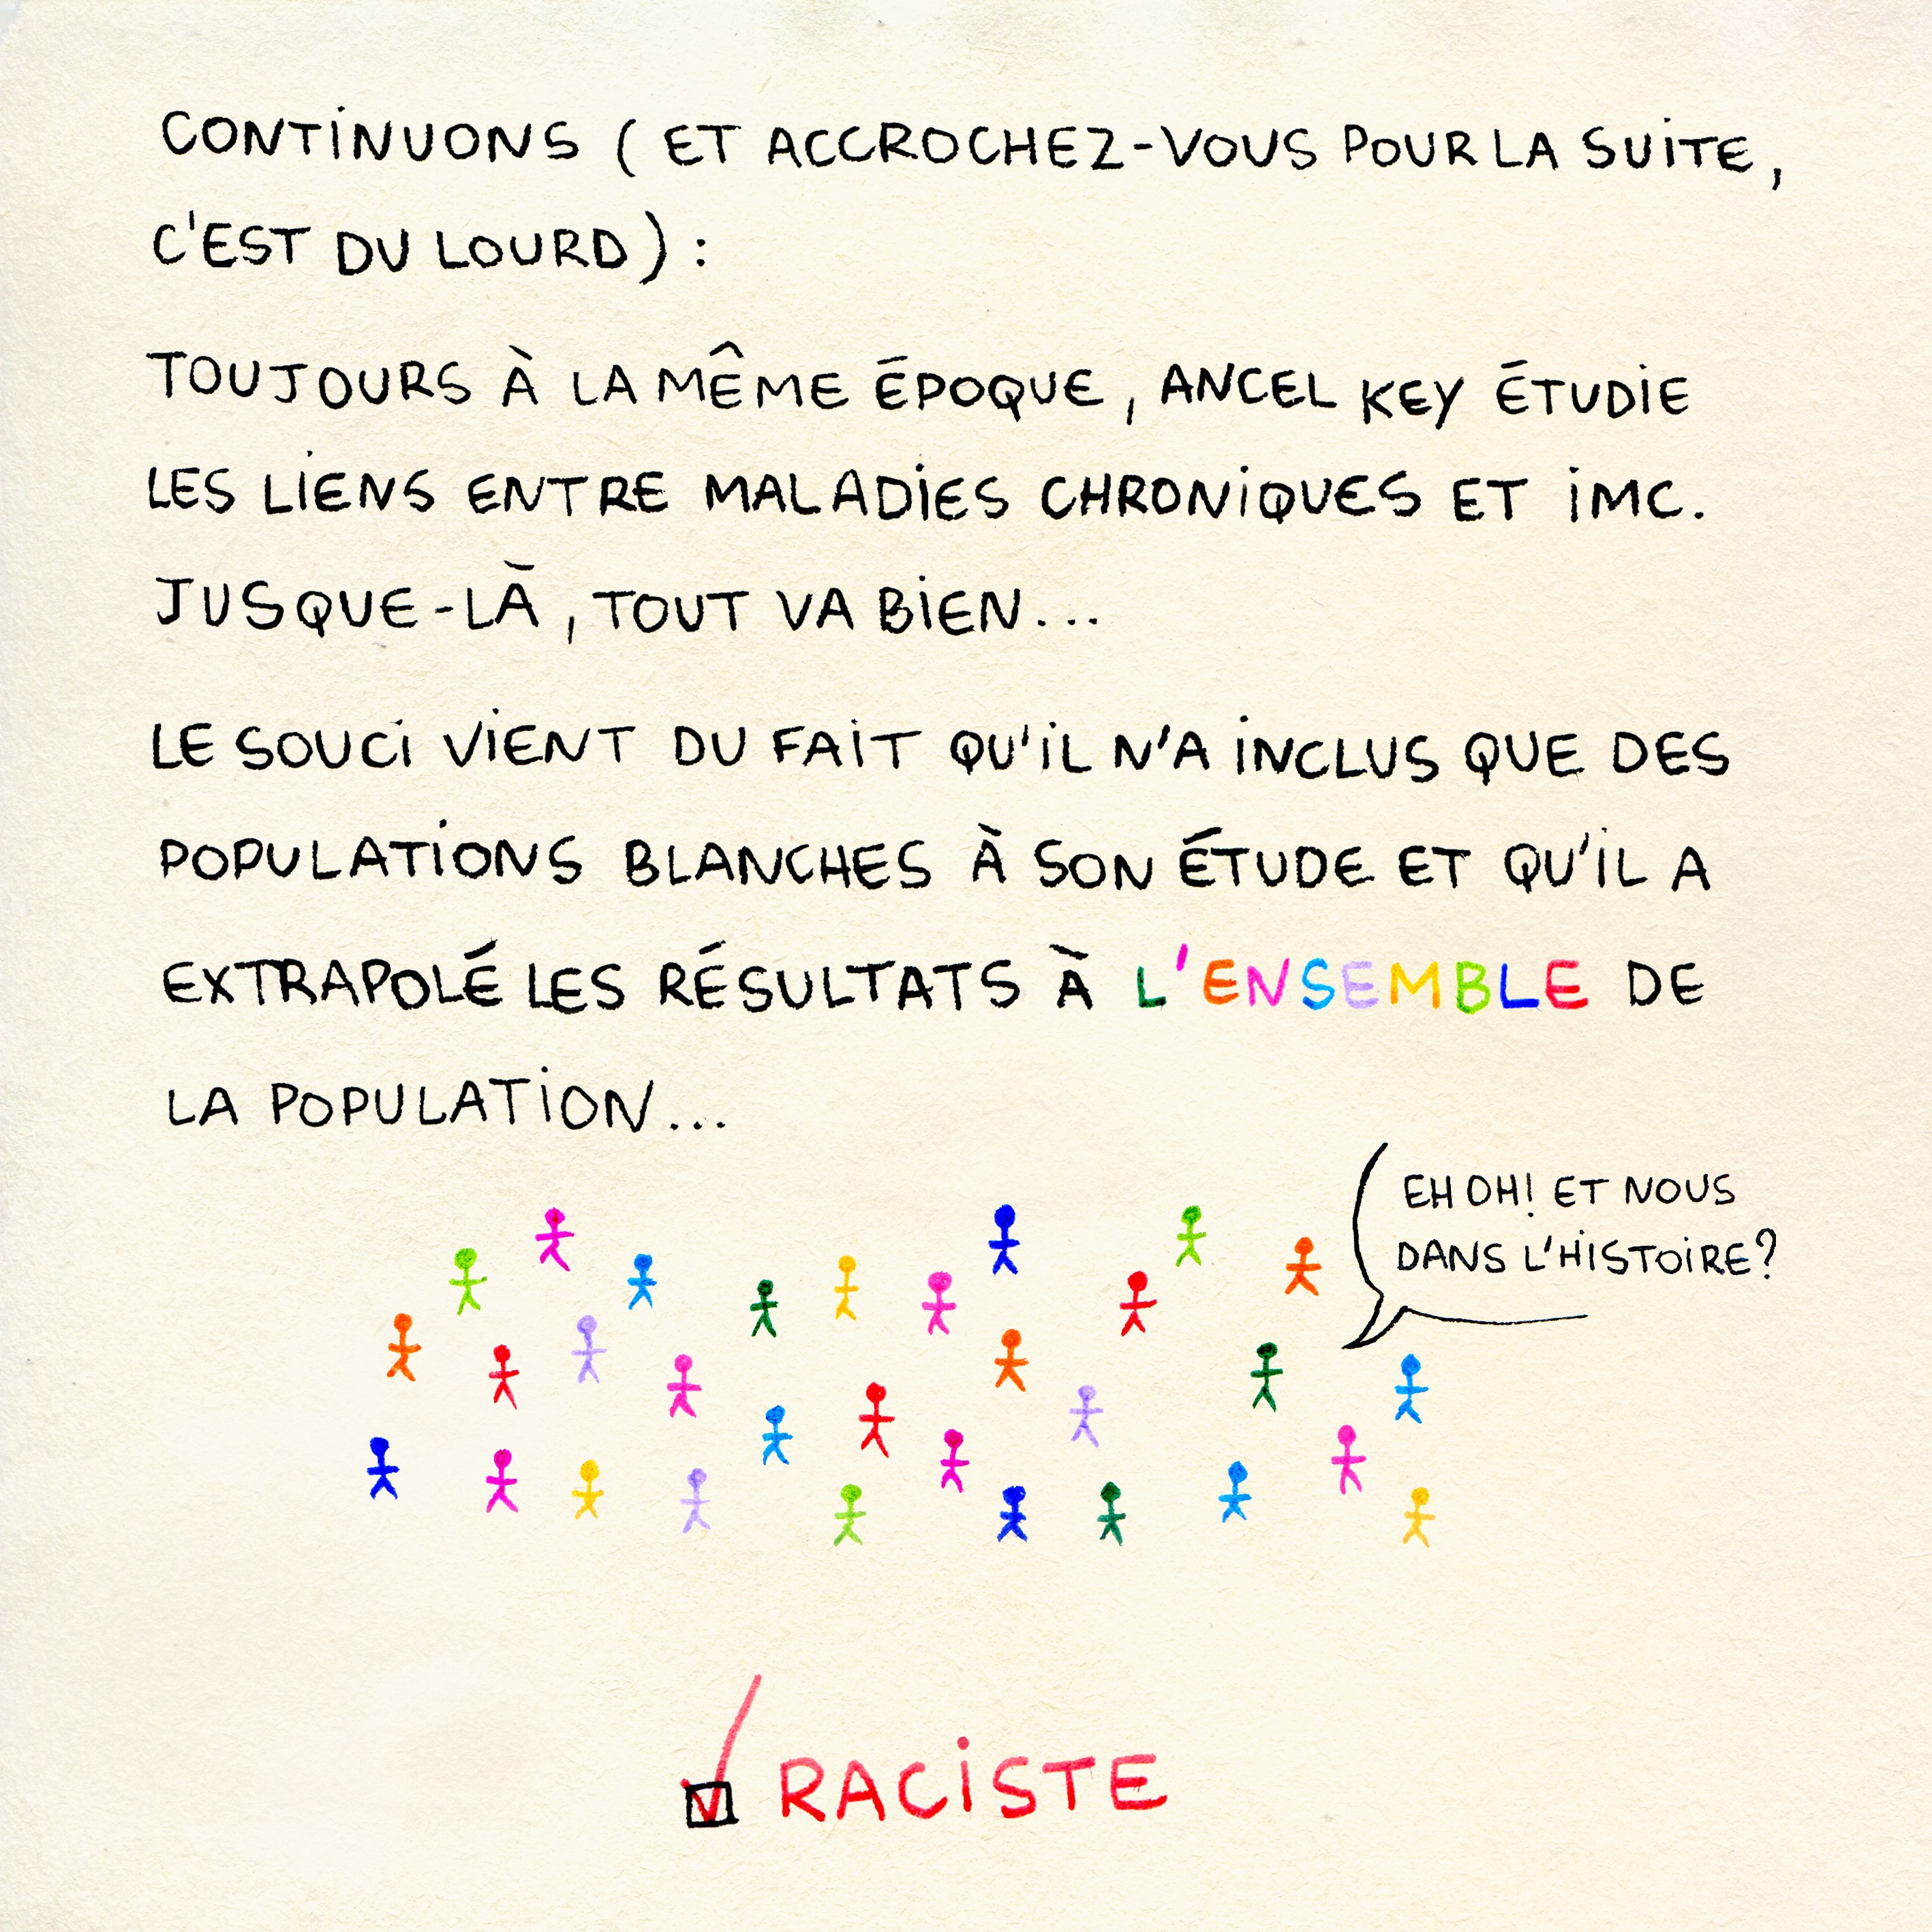 CONTINUONS ( ET ACCROCHEZ-VOUS POUR LA SUITE,
C'EST DU LOURD ) :
TOUJOURS À LA MÊME ÉPOQUE, ANCEL KEY ÉTUDIE
LES LIENS ENTRE MALADIES CHRONIQUES ET IMC.
JUSQUE-LÀ, TOUT VA BIEN...
LE SOUCI VIENT DU FAIT QU'IL N'A INCLUS QUE DES
POPULATIONS BLANCHES À SON ÉTUDE ET QU'IL A
EXTRAPOLÉ LES RÉSULTATS À L'ENSEMBLE DE
LA POPULATION...
EH OH! ET NOUS
DANS L'HISTOIRE?
RACISTE